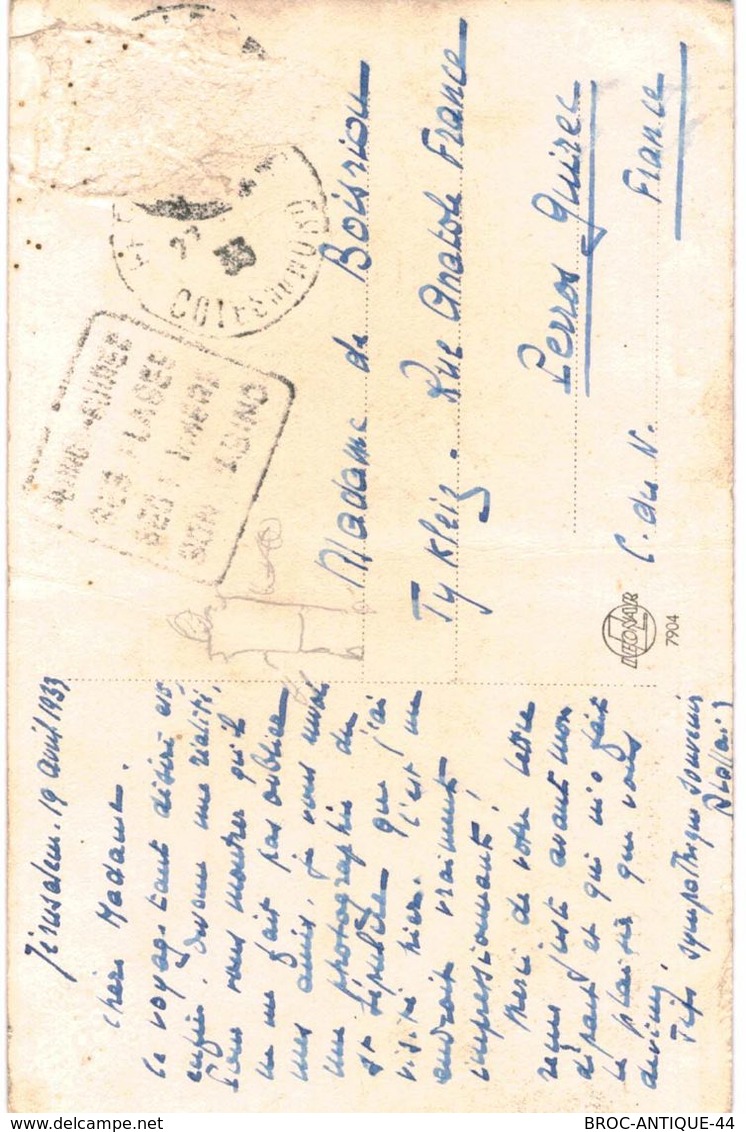 Jérusalem. 19 avril 1933
Chère Madame.
Ce voyage tant désiré est
enfin devenu une réalité.
Pour vous montrer qu'il
ne me fait pas oublier
mes amis, je vous envoie
une photographie du
St Sépulcre que j'ai
visité hier. C'est un
endroit vraiment
impressionnant!
Merci de votre lettre
reçue juste avant mon
départ et qui m'a fait
le plaisir que vous
devinez.
Très sympathique souvenir
COTES DU NORD
33
Madame de Boisriou
Ty Kleiz. Rue Anatole France
Perros Guirec
C. du N. France
LEONAR
7904
BROC-ANTIQUE-44